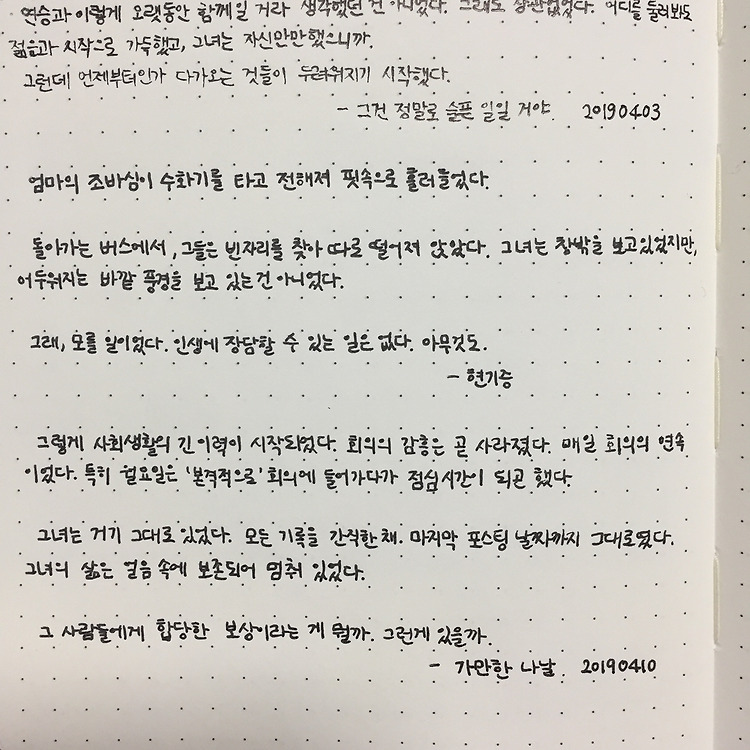 연승과 이렇게 오랫동안 함께일 거라 생각했던 건 아니었다. 그래도 상관없었다. 어디를 둘러봐도
젊음과 시작으로 가득했고, 그녀는 자신만만했으니까.
그런데 언제부터인가 다가오는 것들이 두려워지기 시작했다.
- 그건 정말로 슬픈 일일 거야. 20190403
엄마의 조바심이 수화기를 타고 전해져 핏속으로 흘러들었다.
돌아가는 버스에서, 그들은 빈자리를 찾아 따로 떨어져 앉았다. 그녀는 창밖을 보고 있었지만,
어두워지는 바깥 풍경을 보고 있는 건 아니었다.
그래, 모를 일이었다. 인생에 장담할 수 있는 일은 없다. 아무것도.
- 현기증
그렇게 사회생활의 긴 이력이 시작되었다. 회의의 감흥은 곧 사라졌다. 매일 회의의 연속
이었다. 특히 월요일은 '본격적으로' 회의에 들어가다가 점심시간이 되곤 했다.
그녀는 거기 그대로 있었다. 모든 기록을 간직한 채. 마지막 포스팅 날짜까지 그대로였다.
그녀의 삶은 얼음 속에 보존되어 멈춰 있었다.
그 사람들에게 합당한 보상이라는 게 뭘까. 그런게 있을까.
- 가만한 나날. 20190410